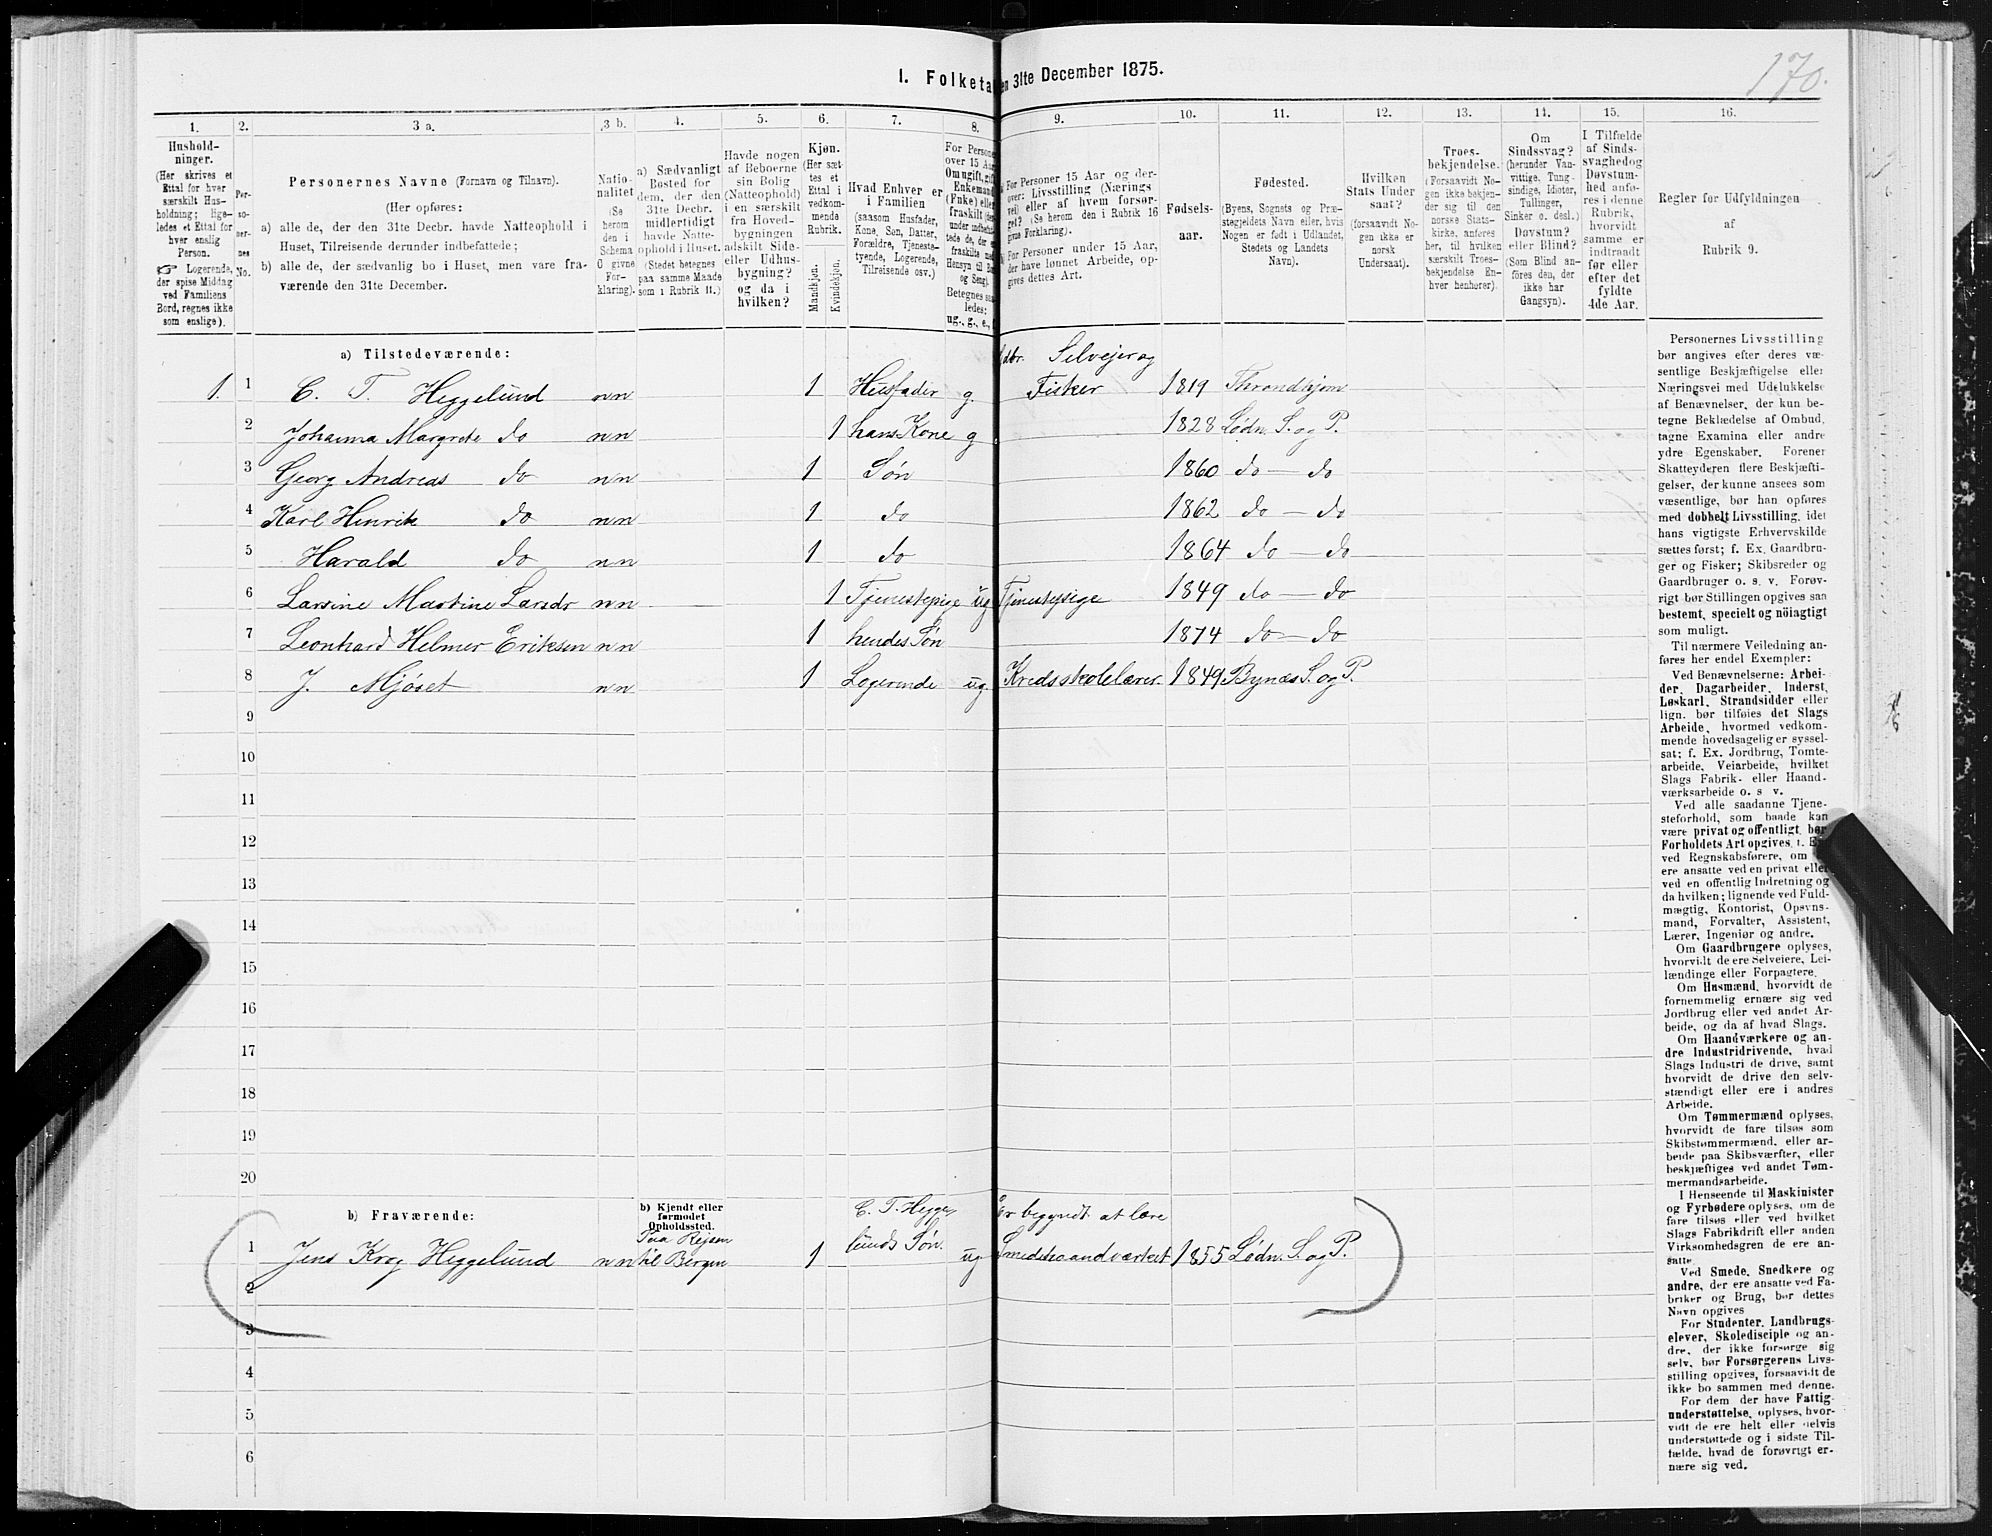 170.
I. Folketa
en 31te December 1875.
1.
2.
3 a.
3 b.
4.
5.
6.
7.
8.
9.
10.
11.
12.
13.
14.
15.
16.
Hushold-
ninger.
(Her skrives et
Ettal for hver
særskilt Hus-
holdning; lige-
ledes et Ettal for
hver enslig
Person.
☞ Logerende,
der spise Middag
ved Familiens
Bord, regnes ikke
som enslige).
Per-
so-
ner-
nes
No.
Personernes Navne (Fornavn og Tilnavn).
(Her opføres:
a) alle de, der den 31te Decbr. havde Natteophold i
Huset, Tilreisende derunder indbefattede;
b) alle de, der sædvanlig bo i Huset, men vare fra-
værende den 31te December.
Natio-
nalitet
(Se
herom
den i
Schema
0 givne
For-
klaring).
a) Sædvanligt
Bosted for
dem, der den
31te Decbr.
midlertidigt
havde Natte-
ophold i Huset.
(Stedet betegnes
paa samme Maade
som i Rubrik 11.)
Havde nogen
af Beboerne
sin Bolig
(Natteophold)
i en særskilt
fra Hoved-
bygningen
adskilt Side-
eller Udhus-
bygning?
og da i
hvilken?
Kjøn.
(Her sæt-
tes et
Ettal i
vedkom-
mende
Rubrik.
Mandkjøn.
Kvindekjøn.
Hvad Enhver er
i Familien
(saasom Husfader,
Kone, Søn, Datter,
Forældre, Tjeneste-
tyende, Logerende,
Tilreisende osv.)
For Persone
over 15 Aar
Om ugift, gift
Enkemand
(Fnke) eller
fraskilt (der-
under indbefat-
tede de, der er
fraskilte med
Hensyn til Bo
og Seng).
Betegnes saa
ledes:
ug., g., e., f
For Personer 15 Aar og der-
over: Livsstilling (Nærings
vei) eller af hvem forsør-
get? (Se herom den i Rubrik 16
givne Forklaring).
For Personer under 15 Aar,
der have lønnet Arbeide, op-
gives dettes Art.
Fødsels-
aar.
Fødested.
(Byens, Sognets og Præ-
stegjeldets Navn eller, hvis
Nogen er født i Udlandet,
Stedets og Landets
Navn).
Hvilken
Stats Under
saat?
(forsaavidt No-
gen ikke er
norsk
Undersaat).
Troes-
bekjendelse.
(Forsaavidt No-
gen ikke bekjen-
der sig til den
norske Stats-
kirke, anføres
her, til hvilken
særskilt Troes-
bekjendelse En-
hver henhører).
Om
Sindssvag?
(herunder Van-
vittige, Tung-
sindige, Idioter,
Tullinger,
Sinker o. desl.)
Døvstum?
eller Blind?
(Som Blind an-
føres den, der
ikke har
Gangsyn).
I Tilfælde
af Sinds-
svaghedog
Døvstum-
hed anfø-
res i denne
Rubrik,
hvorvidt
samme er
indtraadt
før eller
efter det
fyldte
4de Aar.
Regler for Udfyldningen
af
Rubrik 9.
a) Tilstedeværende:
dbr. Selvejer og
1. 1 C. T. Heggelund nn 1 Husfader g. Fisker 1819 Throndhjem
2 Johanna Margrete do nn 1 hans Kone g 1828 Lødn. S. og P.
3 Georg Andreas do nn 1 Søn 1860 do — do
4 Karl Hinrik do nn 1 do 1862 do — do
5 Harald do nn 1 do 1864 do — do
6 Larsine Martine Larsdr nn 1 Tjenestepige ug Tjenestepige 1849 do — do
7 Leonhard Helmer Eriksen nn 1 hendes Søn 1874 do — do
8 J. Mjøset nn 1 Logerende ug Kredsskolelærer 1849 Bynæs S. og P.
9
10
11
12
13
14
15
16
17
18
19
20
b) Fraværende:
b) Kjendt eller
formodet
Opholdssted.
C. T. Hegge
Er begyndt at lære
Paa Rejsen
1 Jens Krog Heggelund nn til Bergen 1 lunds Søn. ug Smedehaandværket 1855 Lødn. S. og P.
2
3
4
5
6
Personernes Livsstilling
bør angives efter deres væ-
sentlige Beskjæftigelse eller
Næringsvei med Udelukkelse
af Benævnelser, der kun be-
tegne Beklædelse af Ombud,
tagne Examina eller andre
ydre Egenskaber. Forener
Skatteyderen flere Beskjæfti-
gelser, der kunne ansees som
væsentlige, bør han opføres
med dobbelt Livsstilling, idet
hans vigtigste Erhvervskilde
sættes først; f. Ex. Gaardbru-
ger og Fisker; Skibsreder og
Gaardbruger o. s. v. Forøv-
rigt bør Stillingen opgives saa
bestemt, specielt og nöiagtigt
som muligt.
Til nærmere Veiledning an-
føres her endel Exempler:
Ved Benævnelserne: Arbei-
der, Dagarbeider, Inderst,
Løskarl, Strandsidder eller
lign. bør tilføies det Slags
Arbeide, hvormed vedkom-
mende hovedsagelig er syssel-
sat; f. Ex. Jordbrug, Tomte-
arbeide, Veiarbeide, hvilket
Slags Fabrik- eller Haand-
værksarbeide o. s v.
Ved alle saadanne Tjene-
steforhold, som baade kan
være privat og offentligt, bør
Forholdets Art opgives, f. Ex
ved Regnskabsførere, om de
ere ansatte ved en privat eller
ved en offentlig Indretning og
da hvilken; lignende ved Fuld-
mægtig, Kontorist, Opsyns-
mand, Forvalter, Assistent,
Lærer, Ingeniør og andre.
Om Gaardbrugere oplyses,
hvorvilt de ere Selveiere, Lei-
lændinge eller Forpagtere.
Om Husmænd, hvorvidt de
fornemmelig ernære sig ved
Jordbrug eller ved andet Ar-
beide, og da af hvad Slags.
Om Haandværkere og an-
dre Industridrivende, hvad
Slags Industri de drive, samt
hvorvidt de drive den selv-
stændigt eller ere i andres
Arbeide.
Om Tømmermænd oplyses,
hvorvidt de fare tilsøs som
Skibstømmermænd, eller ar-
beide paa Skibsværfter, eller
beskjæftiges ved andet Tøm-
mermandsarbeide.
I Henseende til Maskinister
og Fyrbødere oplyses, om de
fare tilsøs eller ved hvilket
Slags Fabrikdrift eller anden
Virksomhedsgren de ere an-
satte.
Ved Smede, Snedkere og
andre, der ere ansatte ved Fa-
briker og Brug, bør dettes
Navn opgives
For Studenter, Landbrugs-
elever, Skoledisciple og an-
dre, der ikke forsørge sig
selv, bør Forsørgerens Livs-
stilling opgives, forsaavidt de
ikke bo sammen med denne.
For dem der have Fattig-
understøttelse, oplyses, hvor-
vidt de ere helt eller delvis
understøttede og i sidste Til-
fælde, hvad de forøvrigt er-
nære sig ved.